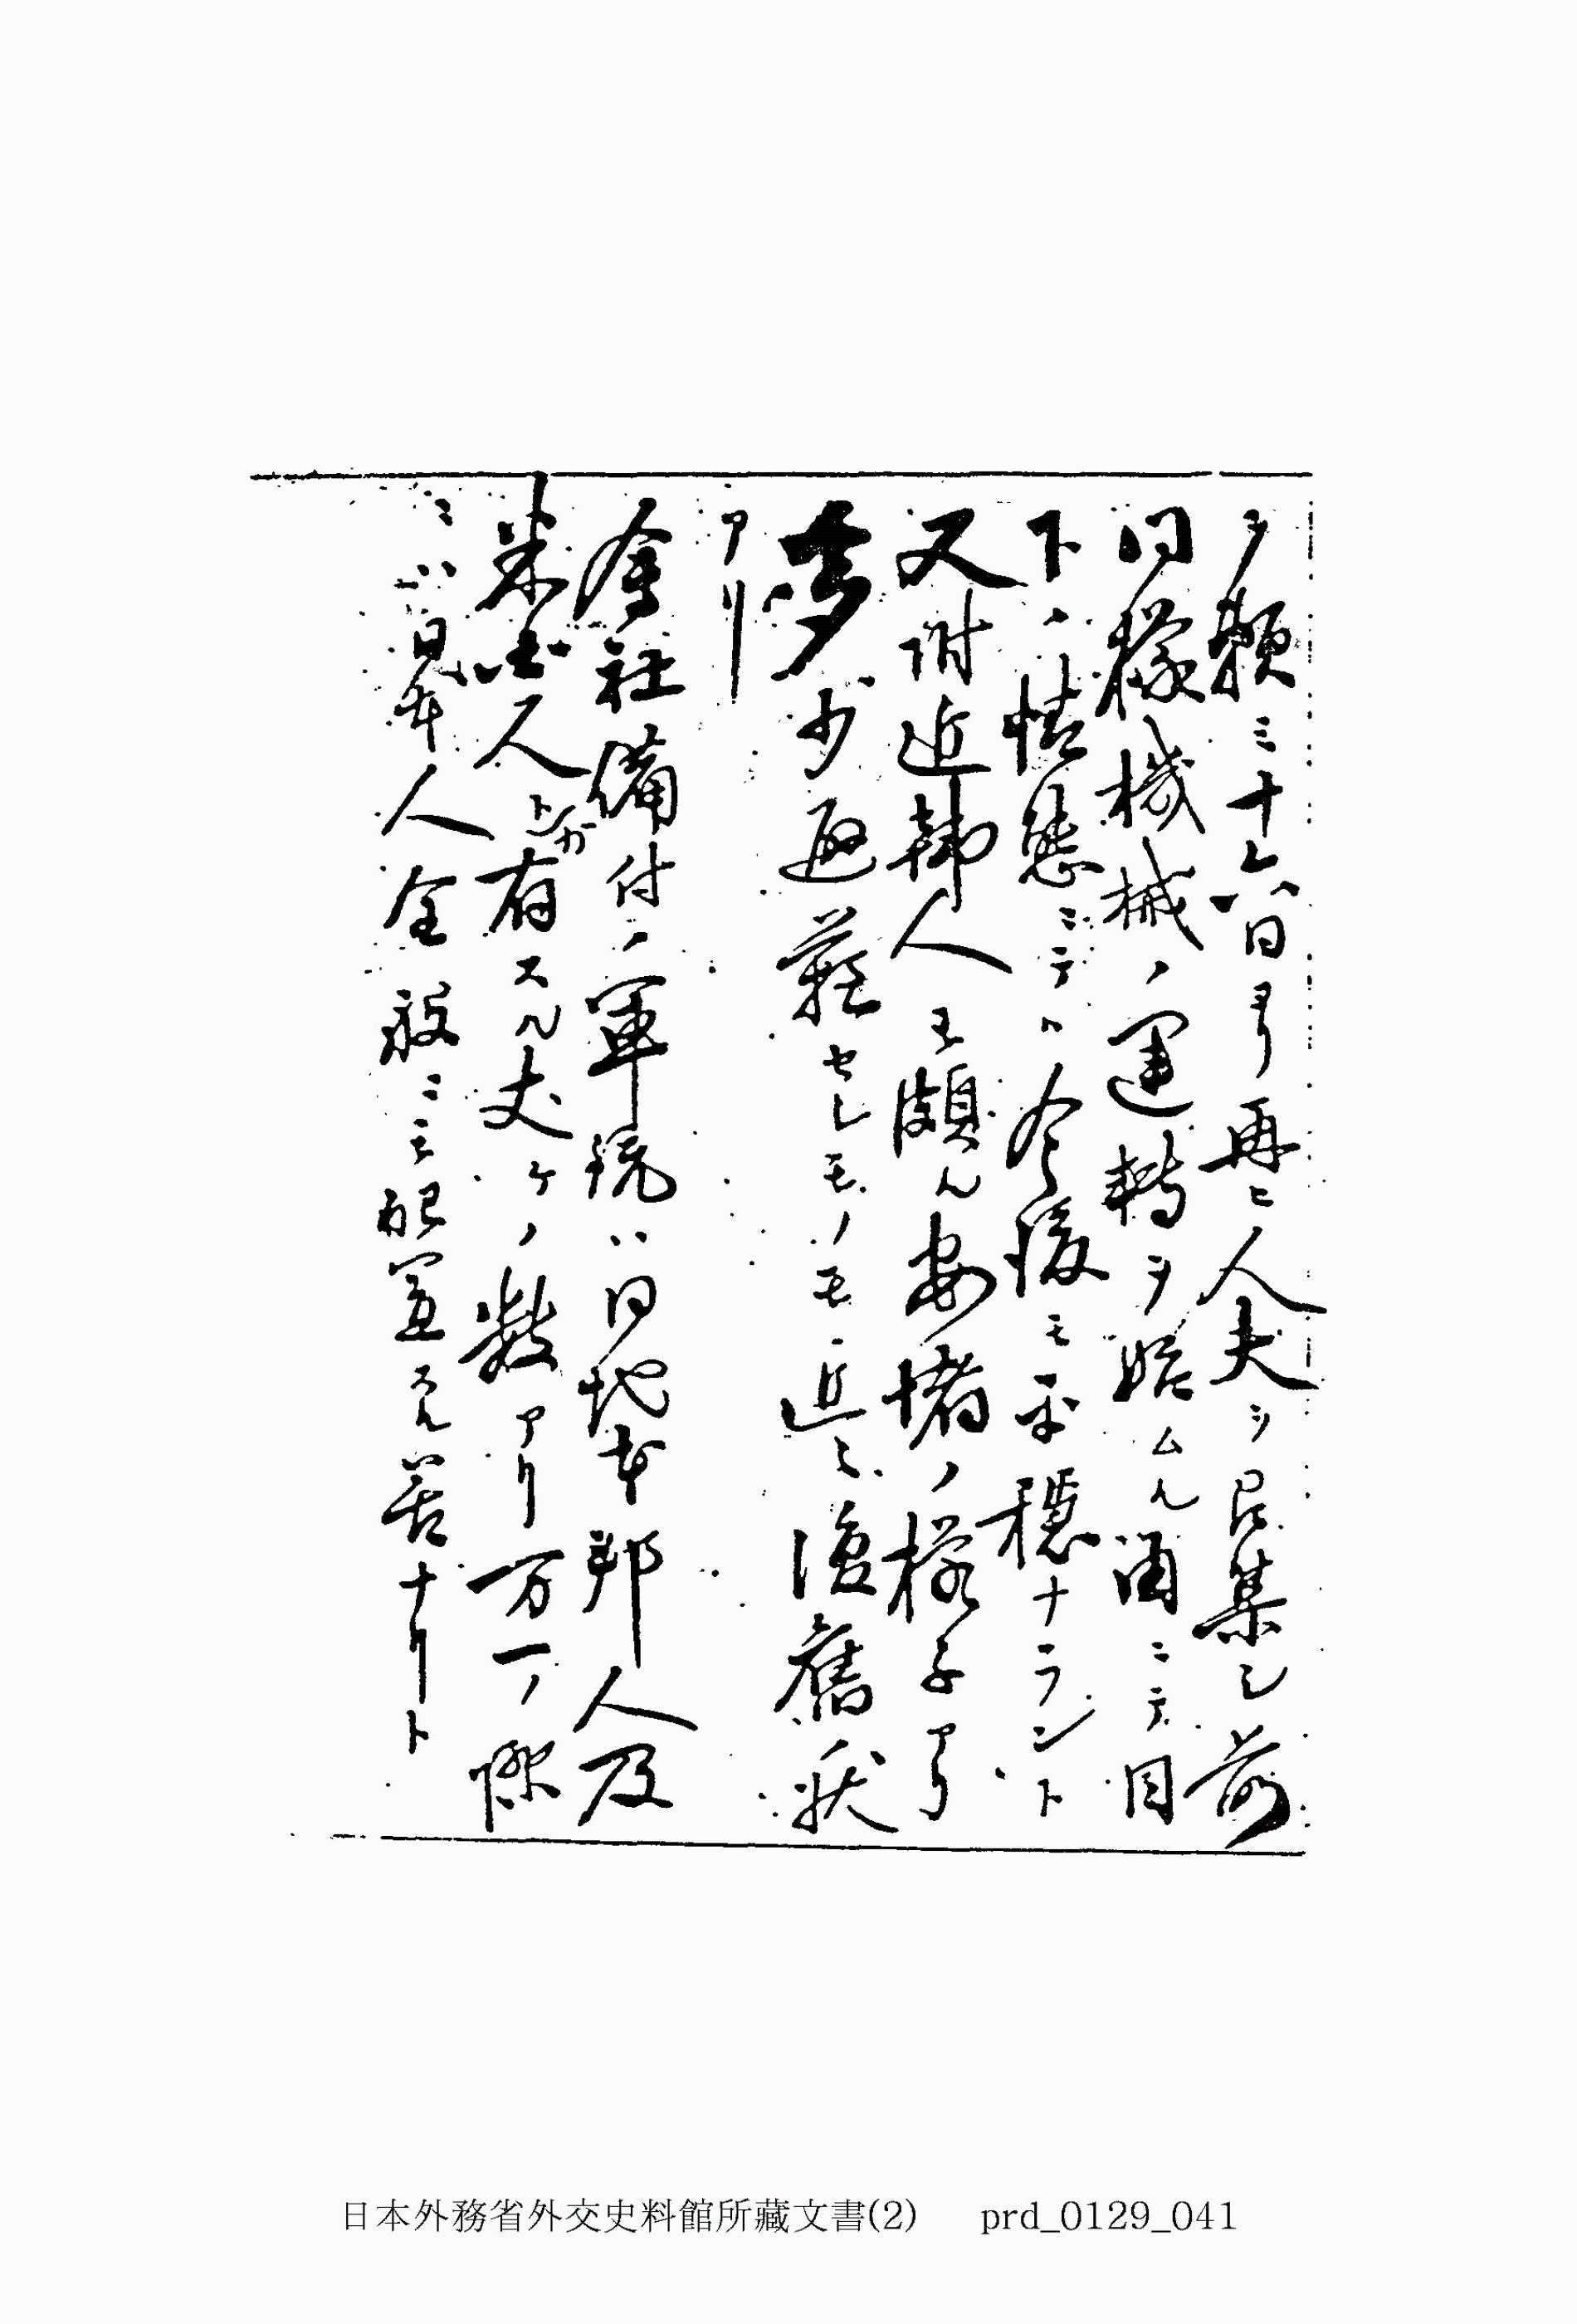 ヲ頼ミ十六日ヨリ再ヒ人夫ヲ召集シ前
同様機械ノ運轉ヲ始ムル油ニテ目
下ノ情態ニテハ今後モ平穏ナラント
又附近韓人モ頗ル安堵ノ様子アリ
多少避難セシモノモ追々復舊ノ状
アリ
會社備付ノ軍銃ハ同地本邦人及
米国人トガ有スル丈ケノ数アリ万一ノ際
ニハ日本人全般ニモ配置スル筈ナリト
日本外務省外交史料館所藏文書(2) prd_0129_041